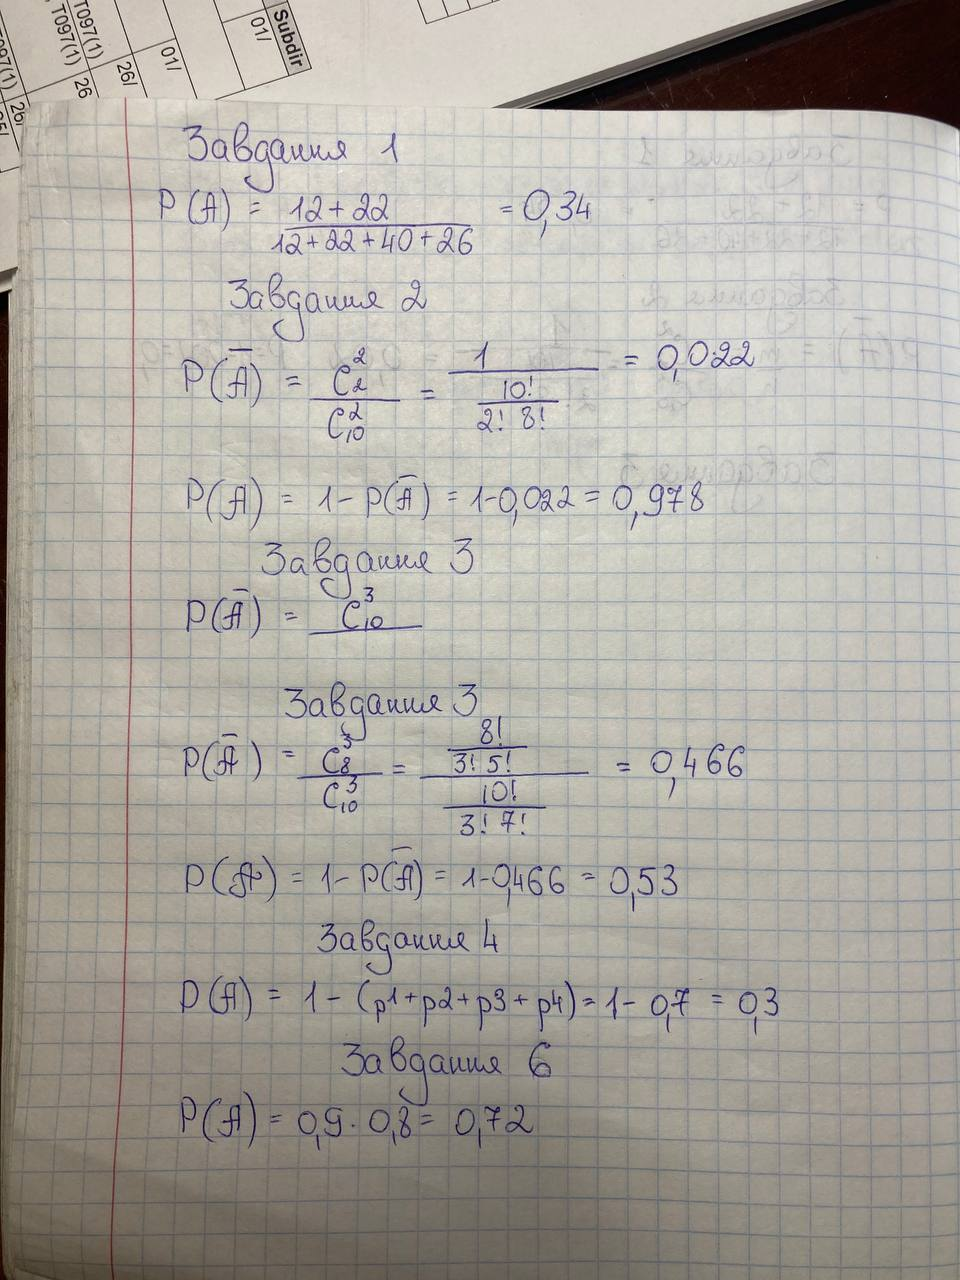 Subdir
01/
01/
T097(1) 26/
T097(1) 26
Завдання 1
P(A) = 12+22 / 12+22+40+26 = 0,34
Завдання 2
P(Ā) = C₂² / C₁₀² = 1 / (10! / 2! 8!) = 0,022
P(A) = 1 - P(Ā) = 1-0,022 = 0,978
Завдання 3
P(Ā) = C₁₀³
Завдання 3
P(Ā) = C₈³ / C₁₀³ = (8! / 3! 5!) / (10! / 3! 7!) = 0,466
P(A) = 1 - P(Ā) = 1-0,466 = 0,53
Завдання 4
P(A) = 1 - (p1+p2+p3+p4) = 1 - 0,7 = 0,3
Завдання 6
P(A) = 0,9 · 0,8 = 0,72